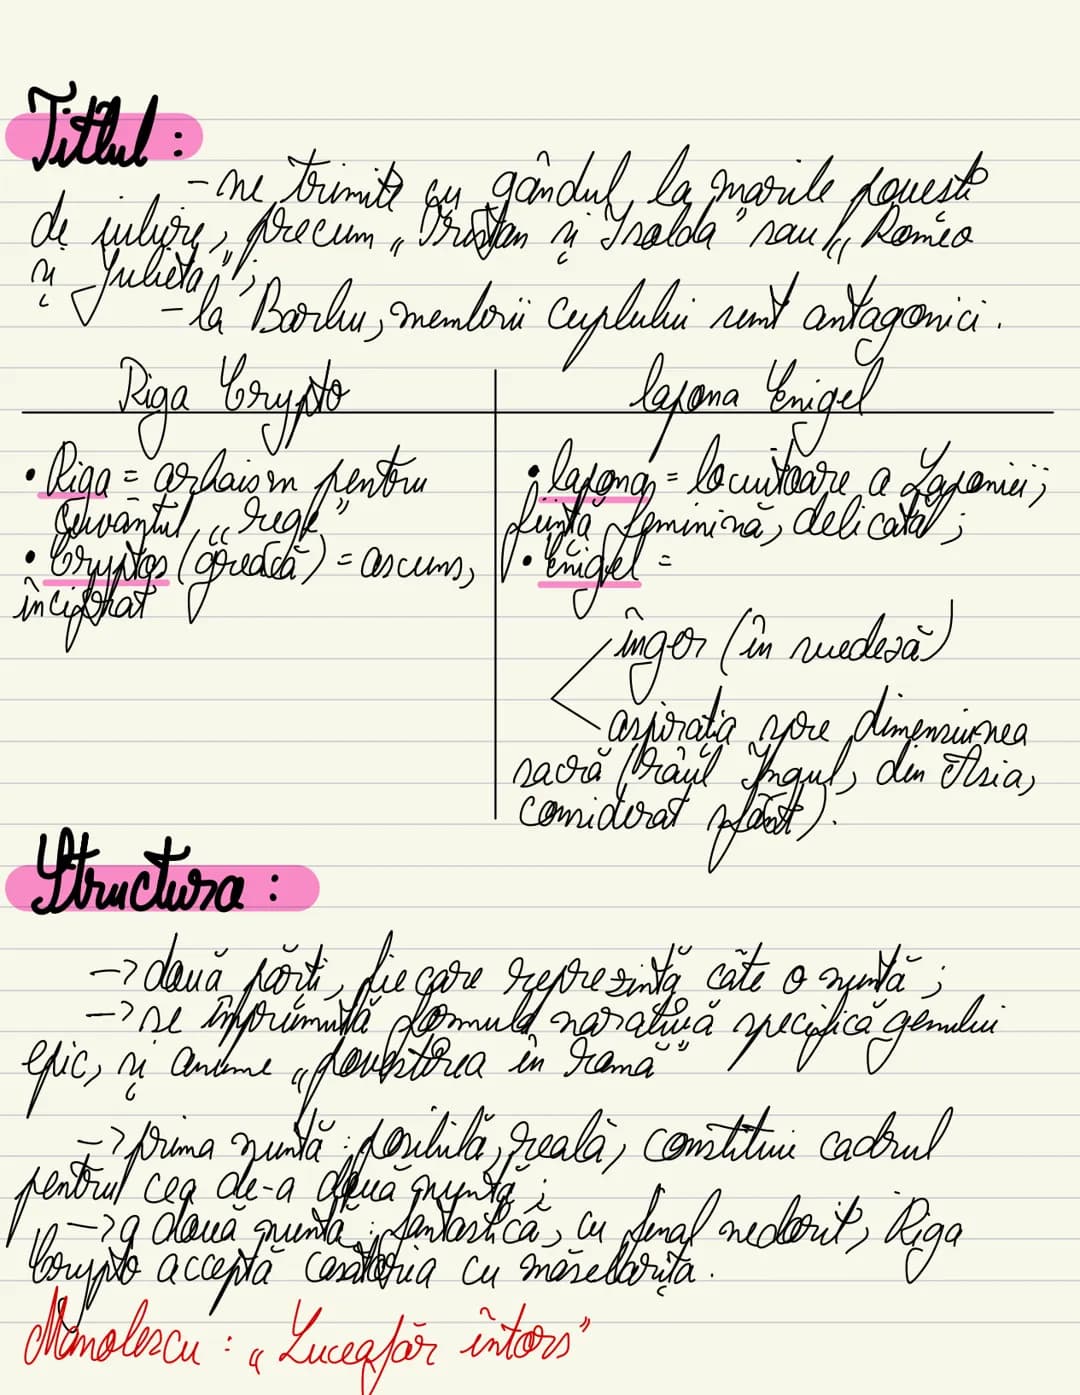 Titlul :
- ne trimite cu gândul la marile povești
de iubire, precum „Tristan și Isolda" sau „Romeo
și Julieta";
- la Barbu, membrii cuplului sunt antagonici.
Riga Crypto
• Riga = arhaism pentru
cuvântul „rege"
• Cryptos (greacă) = ascuns,
încifrat
lapona Enigel
• lapona = locuitoare a Laponiei;
ființă feminină, delicată;
• Enigel =
înger (în suedeză)
aspirația spre dimensiunea
sacră (râul Ingul, din Asia,
considerat sfânt).
Structura :
-> două părți, fiecare reprezintă câte o nuntă;
-> se împrumută formula narativă specifică genului
epic, și anume „povestirea în ramă"
-> prima nuntă: posibilă, reală, constituie cadrul
pentru cea de-a doua nuntă;
-> a doua nuntă: fantastică, cu final nedorit, Riga
Crypto acceptă căsătoria cu măselarița.
Manolescu : „Luceafăr întors"